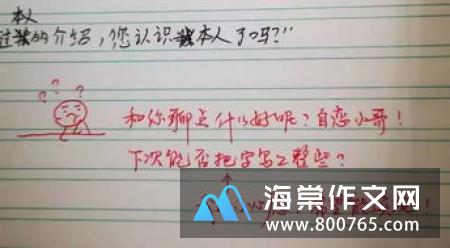 本人
过的介绍，您认识本人了吗？”
? ? ?
和你聊点什么好呢？自恋小哥！
下次能否把字写工整些？
海棠作文网
www.800765.com